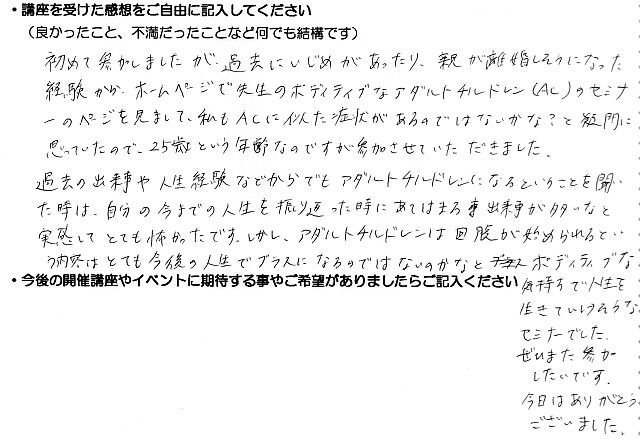 ・講座を受けた感想をご自由に記入してください
（良かったこと、不満だったことなど何でも結構です）
初めて参加しましたが、過去にいじめがあったり、親が離婚しそうになった
経験から、ホームページで先生のポディティブなアダルトチルドレン(AC)のセミナ
ーのページを見まして、私もACに似た症状があるのではないかな？と疑問に
思っていたので、25歳という年齢なのですが参加させていただきました。
過去の出来事や人生経験などからでもアダルトチルドレンになるということを聞い
た時は、自分の今までの人生を振り返った時にあてはまる事出来事が多いなと
実感してとても怖かったです。しかし、アダルトチルドレンは回復が始められるとい
う内容はとても今後の人生でプラスになるのではないのかなと ポディティブな
気持ちで人生を
生きていけそうな
セミナーでした。
ぜひまた参加
したいです。
今日はありがとう
ございました。
・今後の開催講座やイベントに期待する事やご希望がありましたらご記入ください